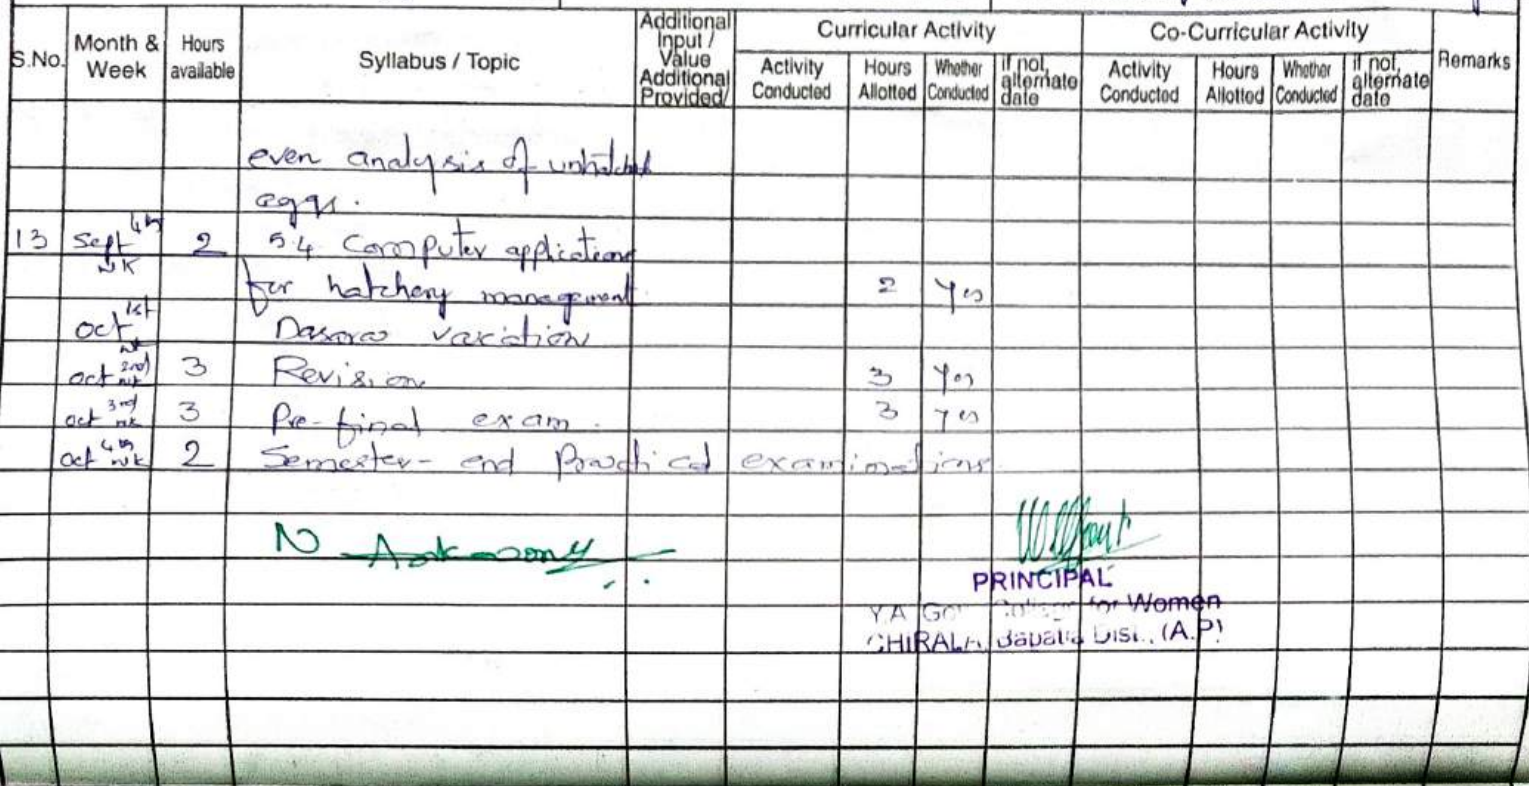 S.No. Month & Week Hours available Syllabus / Topic Additional Input / Value Additional Provided/ Curricular Activity Co-Curricular Activity Remarks
Activity Conducted Hours Allotted Whether Conducted if not, alternate date Activity Conducted Hours Allotted Whether Conducted if not, alternate date
even analysis of unhatched
eggs.
13 Sept 4th wk 2 5.4 Computer applications
for hatchery management 2 Yes
Oct 1st wk Dasara vacation
Oct 2nd wk 3 Revision 3 Yes
Oct 3rd wk 3 Pre-final exam. 3 Yes
Oct 4th wk 2 Semester-end Practical examinations
N
PRINCIPAL
Y.A Govt College for Women
CHIRALA, Bapatla Dist., (A.P)